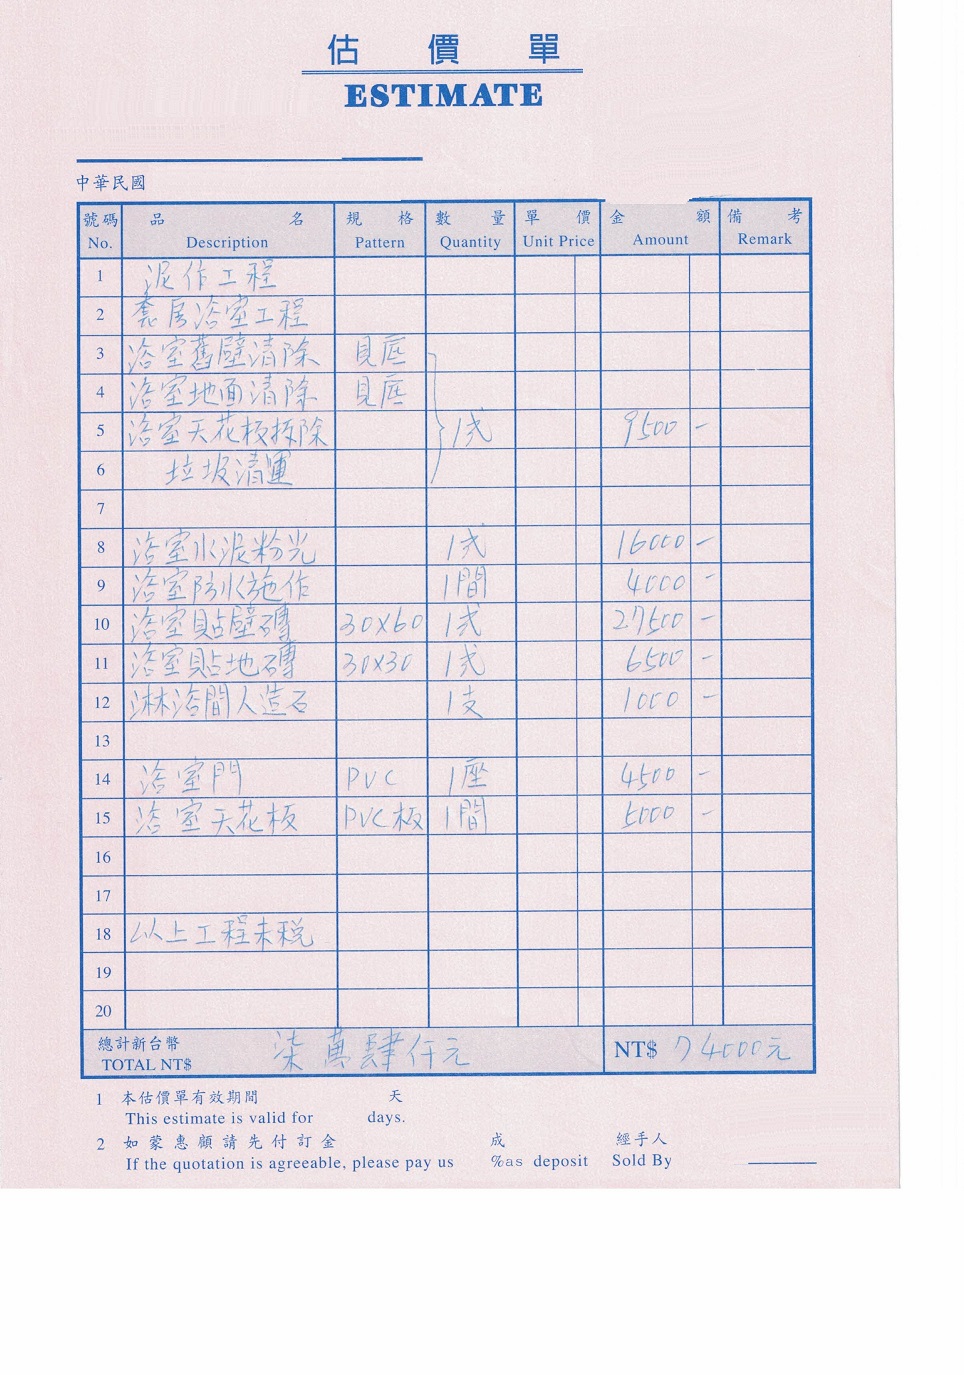 估價單
ESTIMATE
中華民國
號碼 品名 規格 數量 單價 金額 備考
No. Description Pattern Quantity Unit Price Amount Remark
1 泥作工程
2 套房浴室工程
3 浴室舊壁清除 見底
4 浴室地面清除 見底
5 浴室天花板拆除 1式 9500 -
6 垃圾清運
7
8 浴室水泥粉光 1式 16000 -
9 浴室防水施作 1間 4000 -
10 浴室貼壁磚 30X60 1式 27500 -
11 浴室貼地磚 30X30 1式 6500 -
12 淋浴間人造石 1支 1000 -
13
14 浴室門 PVC 1座 4500 -
15 浴室天花板 PVC板 1間 5000 -
16
17
18 以上工程未稅
19
20
總計新台幣 柒萬肆仟元 NT$ 74000元
TOTAL NT$
1 本估價單有效期間 天
This estimate is valid for days.
2 如蒙惠顧請先付訂金 成 經手人
If the quotation is agreeable, please pay us %as deposit Sold By